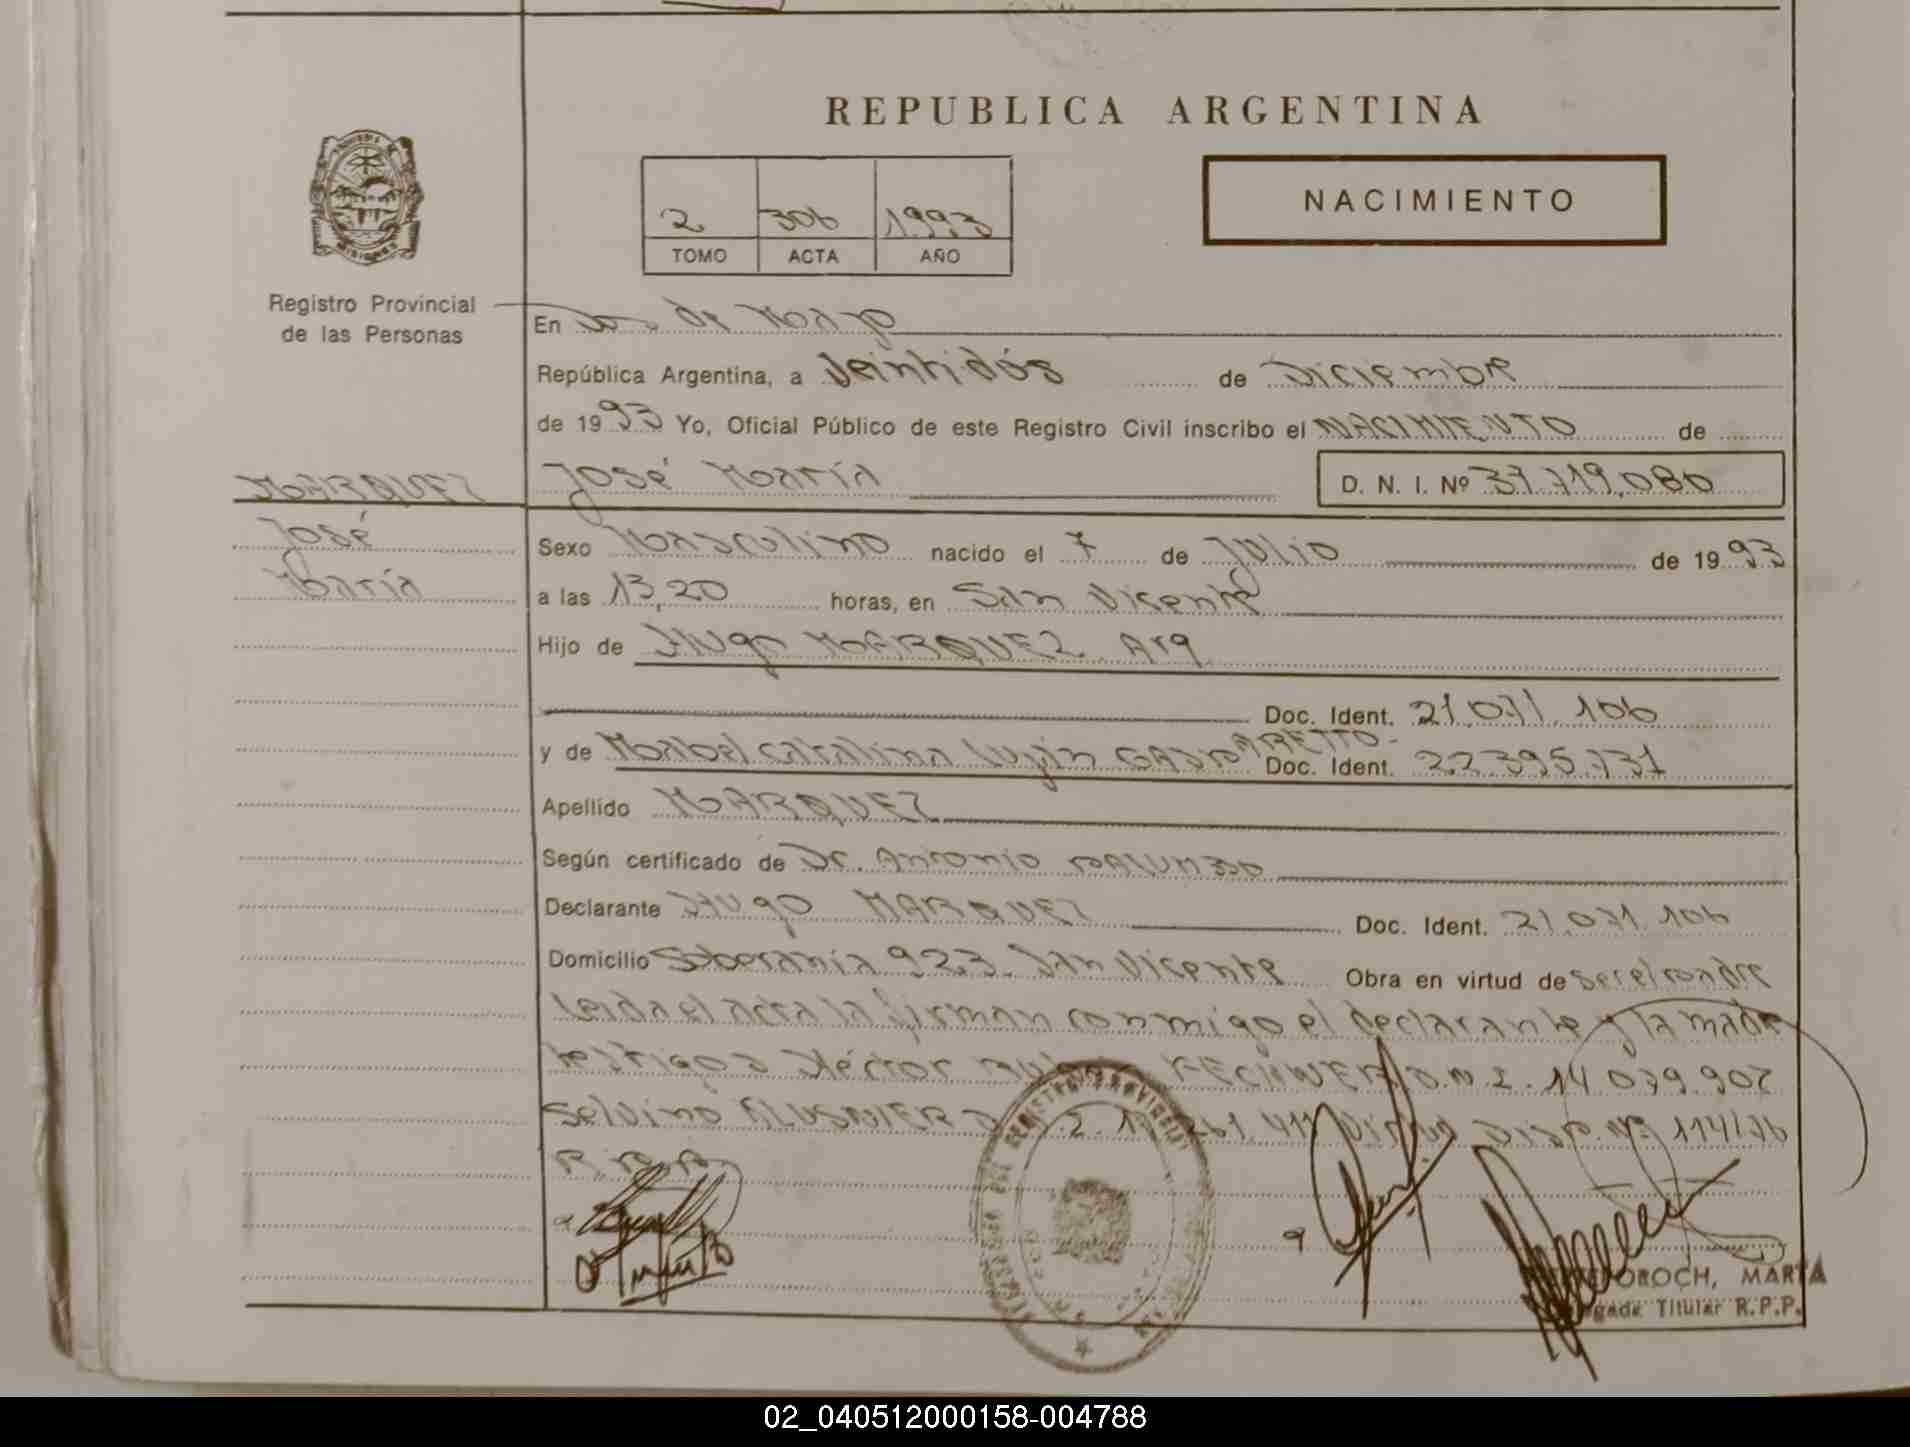 REPUBLICA ARGENTINA
NACIMIENTO
2 306 1993
TOMO ACTA AÑO
Registro Provincial
de las Personas
En Dos de Mayo
República Argentina, a Veintidós de Diciembre
de 1993 Yo, Oficial Público de este Registro Civil inscribo el NACIMIENTO de
José María D. N. I. Nº 37.719.080
MARQUEZ
José
María
Sexo Masculino nacido el 7 de Julio de 1993
a las 13,20 horas, en San Vicente
Hijo de Hugo MARQUEZ Arg
Doc. Ident. 21.071.106
y de Mabel Catalina Luján Doc. Ident. 22.395.731
Apellido MARQUEZ
Según certificado de Dr. Antonio
Declarante Hugo MARQUEZ Doc. Ident. 21.071.106
Domicilio Soberanía 923. San Vicente Obra en virtud de ser el padre
Leida el acta la firman conmigo el declarante y la madre
testigos Héctor D.N.I. 14.039.907
Selvino Disp. Nº 114/76
R.P.P.
MARTA
Titular R.P.P.
02_040512000158-004788